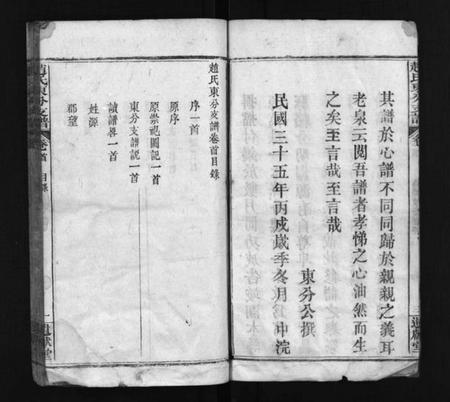 其譜於心譜不同同歸於親親之義耳
老泉云閱吾譜者孝悌之心油然而生
之矣至言哉至言哉
東分公撰
民國三十五年丙戌歲季冬月 中浣
趙氏東分支譜卷首目錄
序一首
原序
原崇祀圖説一首
東分支譜説一首
讀譜畧一首
姓源
郡望
趙氏東分支譜
卷首 目錄
一